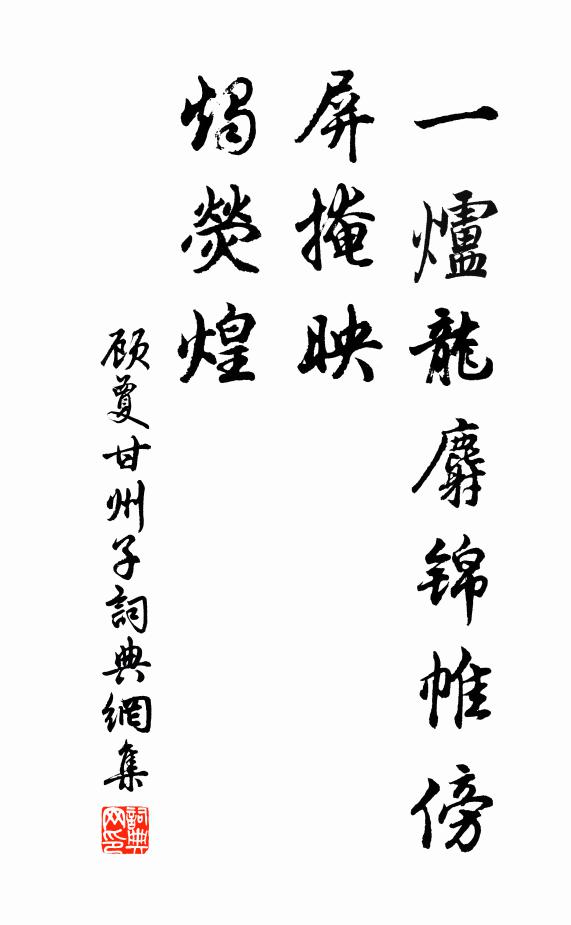 一爐龍麝锦帷傍
屏掩映
燭熒煌
顾夐甘州子詞典網集
詞典网印